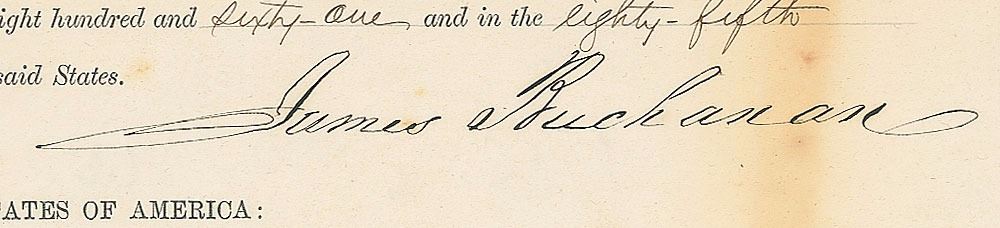 ight hundred and sixty-one and in the eighty-fifth
said States.
James Buchanan
ATES OF AMERICA: